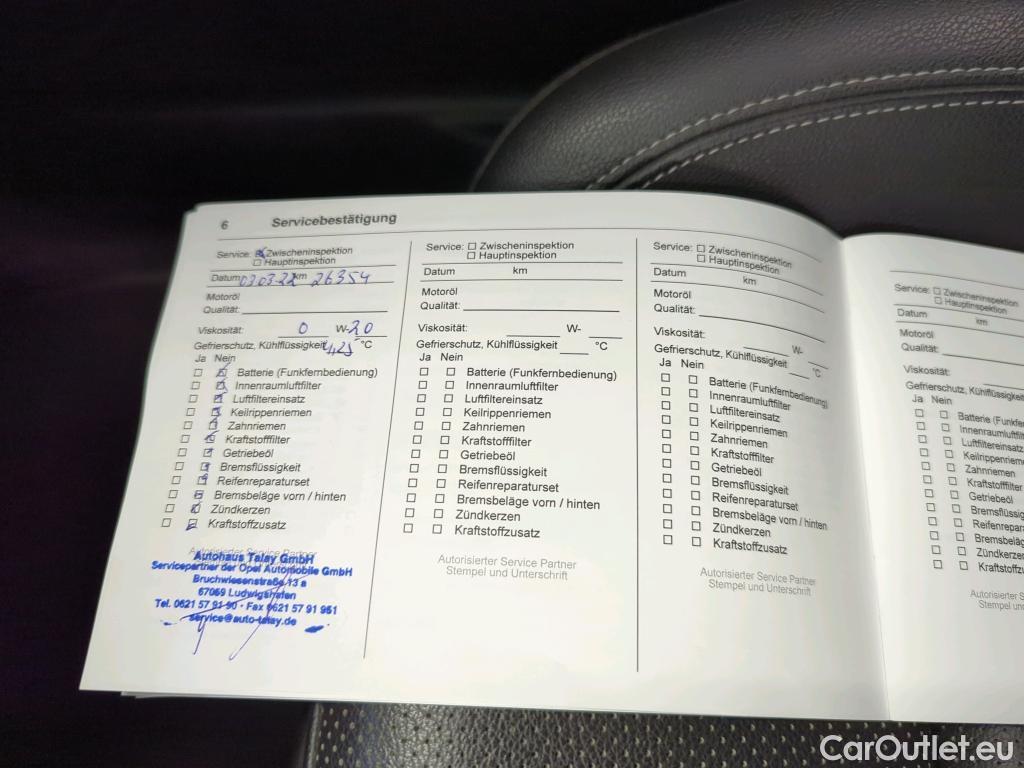 6 Servicebestätigung
Service: Zwischeninspektion
Hauptinspektion
Datum 03.03.22 km 26354
Motoröl
Qualität:
Viskosität: 0 W-20
Gefrierschutz, Kühlflüssigkeit °C
Ja Nein
Batterie (Funkfernbedienung)
Innenraumluftfilter
Luftfiltereinsatz
Keilrippenriemen
Zahnriemen
Kraftstofffilter
Getriebeöl
Bremsflüssigkeit
Reifenreparaturset
Bremsbeläge vorn / hinten
Zündkerzen
Kraftstoffzusatz
Autorisierter Service Partner
Autohaus Talay GmbH
Servicepartner der Opel Automobile GmbH
Bruchwiesenstraße 13 a
67059 Ludwigshafen
Tel. 0621 57 91 90 · Fax 0621 57 91 951
service@auto-talay.de
Service: Zwischeninspektion
Hauptinspektion
Datum km
Motoröl
Qualität:
Viskosität: W-
Gefrierschutz, Kühlflüssigkeit °C
Ja Nein
Batterie (Funkfernbedienung)
Innenraumluftfilter
Luftfiltereinsatz
Keilrippenriemen
Zahnriemen
Kraftstofffilter
Getriebeöl
Bremsflüssigkeit
Reifenreparaturset
Bremsbeläge vorn / hinten
Zündkerzen
Kraftstoffzusatz
Autorisierter Service Partner
Stempel und Unterschrift
Service: Zwischeninspektion
Hauptinspektion
Datum km
Motoröl
Qualität:
Viskosität: W-
Gefrierschutz, Kühlflüssigkeit °C
Ja Nein
Batterie (Funkfernbedienung)
Innenraumluftfilter
Luftfiltereinsatz
Keilrippenriemen
Zahnriemen
Kraftstofffilter
Getriebeöl
Bremsflüssigkeit
Reifenreparaturset
Bremsbeläge vorn / hinten
Zündkerzen
Kraftstoffzusatz
Autorisierter Service Partner
Stempel und Unterschrift
Service: Zwischeninspektion
Hauptinspektion
Datum km
Motoröl
Qualität:
Viskosität:
Gefrierschutz, Kühlflüssigkeit
Ja Nein
Batterie (Funkfe
Innenraumluftfi
Luftfiltereinsatz
Keilrippenrieme
Zahnriemen
Kraftstofffilter
Getriebeöl
Bremsflüssig
Reifenrepara
Bremsbeläg
Zündkerzen
Kraftstoffzu
Autorisierter S
Stempel und
CarOutlet.eu